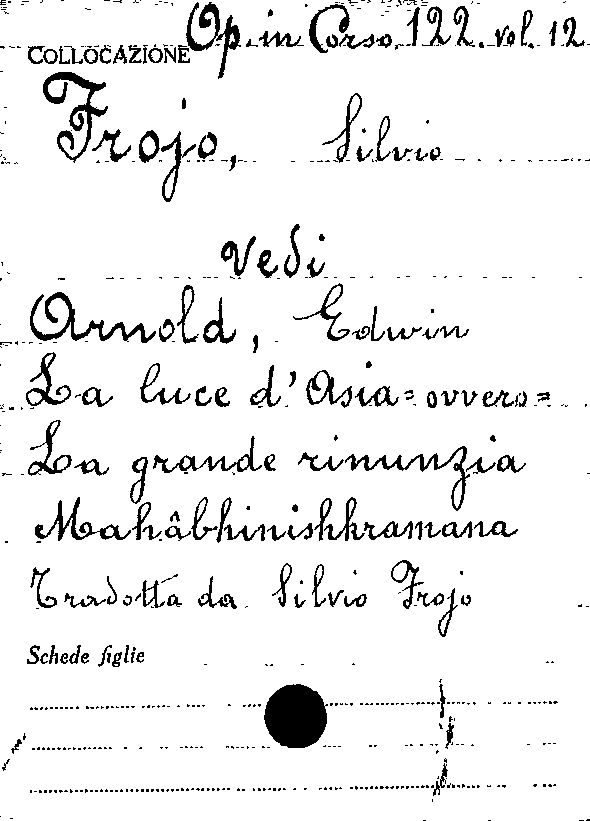 COLLOCAZIONE Op. in Corso. 122. vol. 12
Frojo, Silvio
Vedi
Arnold, Edwin
La luce d'Asia = ovvero =
La grande rinunzia
Mahâbhinishkramana
Tradotta da Silvio Frojo
Schede figlie